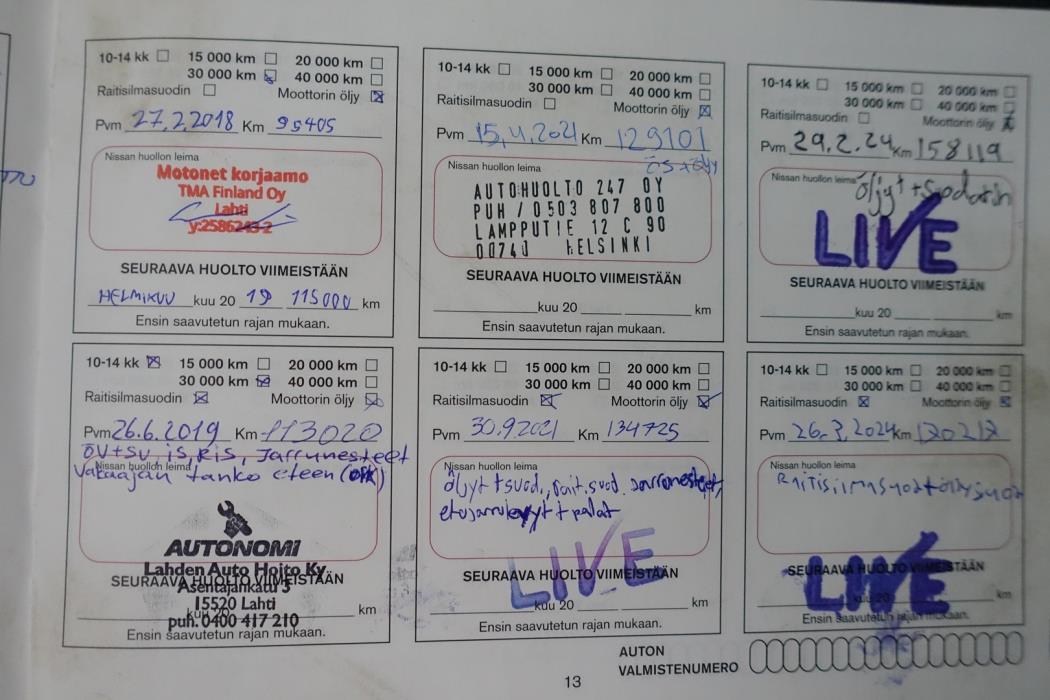 10-14 kk 15 000 km 20 000 km
30 000 km 40 000 km
Raitisilmasuodin Moottorin öljy
Pvm 27.2.2018 Km 95405
Nissan huollon leima
Motonet korjaamo
TMA Finland Oy
Lahti
y:2586243-2
SEURAAVA HUOLTO VIIMEISTÄÄN
HELMIKUU kuu 20 19 115000 km
Ensin saavutetun rajan mukaan.
10-14 kk 15 000 km 20 000 km
30 000 km 40 000 km
Raitisilmasuodin Moottorin öljy
Pvm 15.4.2021 Km 129101
Nissan huollon leima ÖS+öljy
AUTOHUOLTO 247 OY
PUH / 0503 807 800
LAMPPUTIE 12 C 90
00740 HELSINKI
SEURAAVA HUOLTO VIIMEISTÄÄN
kuu 20 km
Ensin saavutetun rajan mukaan.
10-14 kk 15 000 km 20 000 km
30 000 km 40 000 km
Raitisilmasuodin Moottorin öljy
Pvm 29.2.24 Km 158119
Nissan huollon leima öljyt+suodatin
LIVE
SEURAAVA HUOLTO VIIMEISTÄÄN
kuu 20 km
Ensin saavutetun rajan mukaan.
10-14 kk 15 000 km 20 000 km
30 000 km 40 000 km
Raitisilmasuodin Moottorin öljy
Pvm 26.6.2019 Km 113020
ÖV+SV, iS, RiS, Jarrunesteet
Nissan huollon leima
Vakaajan tanko eteen
AUTONOMI
Lahden Auto Hoito Ky
SEURAAVA HUOLTO VIIMEISTÄÄN
Asentajankatu 3
15520 Lahti
kuu 20 km
puh. 0400 417 210
Ensin saavutetun rajan mukaan.
10-14 kk 15 000 km 20 000 km
30 000 km 40 000 km
Raitisilmasuodin Moottorin öljy
Pvm 30.9.2021 Km 134725
Nissan huollon leima
öljyt+suod., rait.suod. Jarrunesteet,
etujarrulevyt+palat
LIVE
SEURAAVA HUOLTO VIIMEISTÄÄN
kuu 20 km
Ensin saavutetun rajan mukaan.
10-14 kk 15 000 km 20 000 km
30 000 km 40 000 km
Raitisilmasuodin Moottorin öljy
Pvm Km
Nissan huollon leima
LIVE
SEURAAVA HUOLTO VIIMEISTÄÄN
kuu 20 km
Ensin saavutetun rajan mukaan.
AUTON
VALMISTENUMERO
13